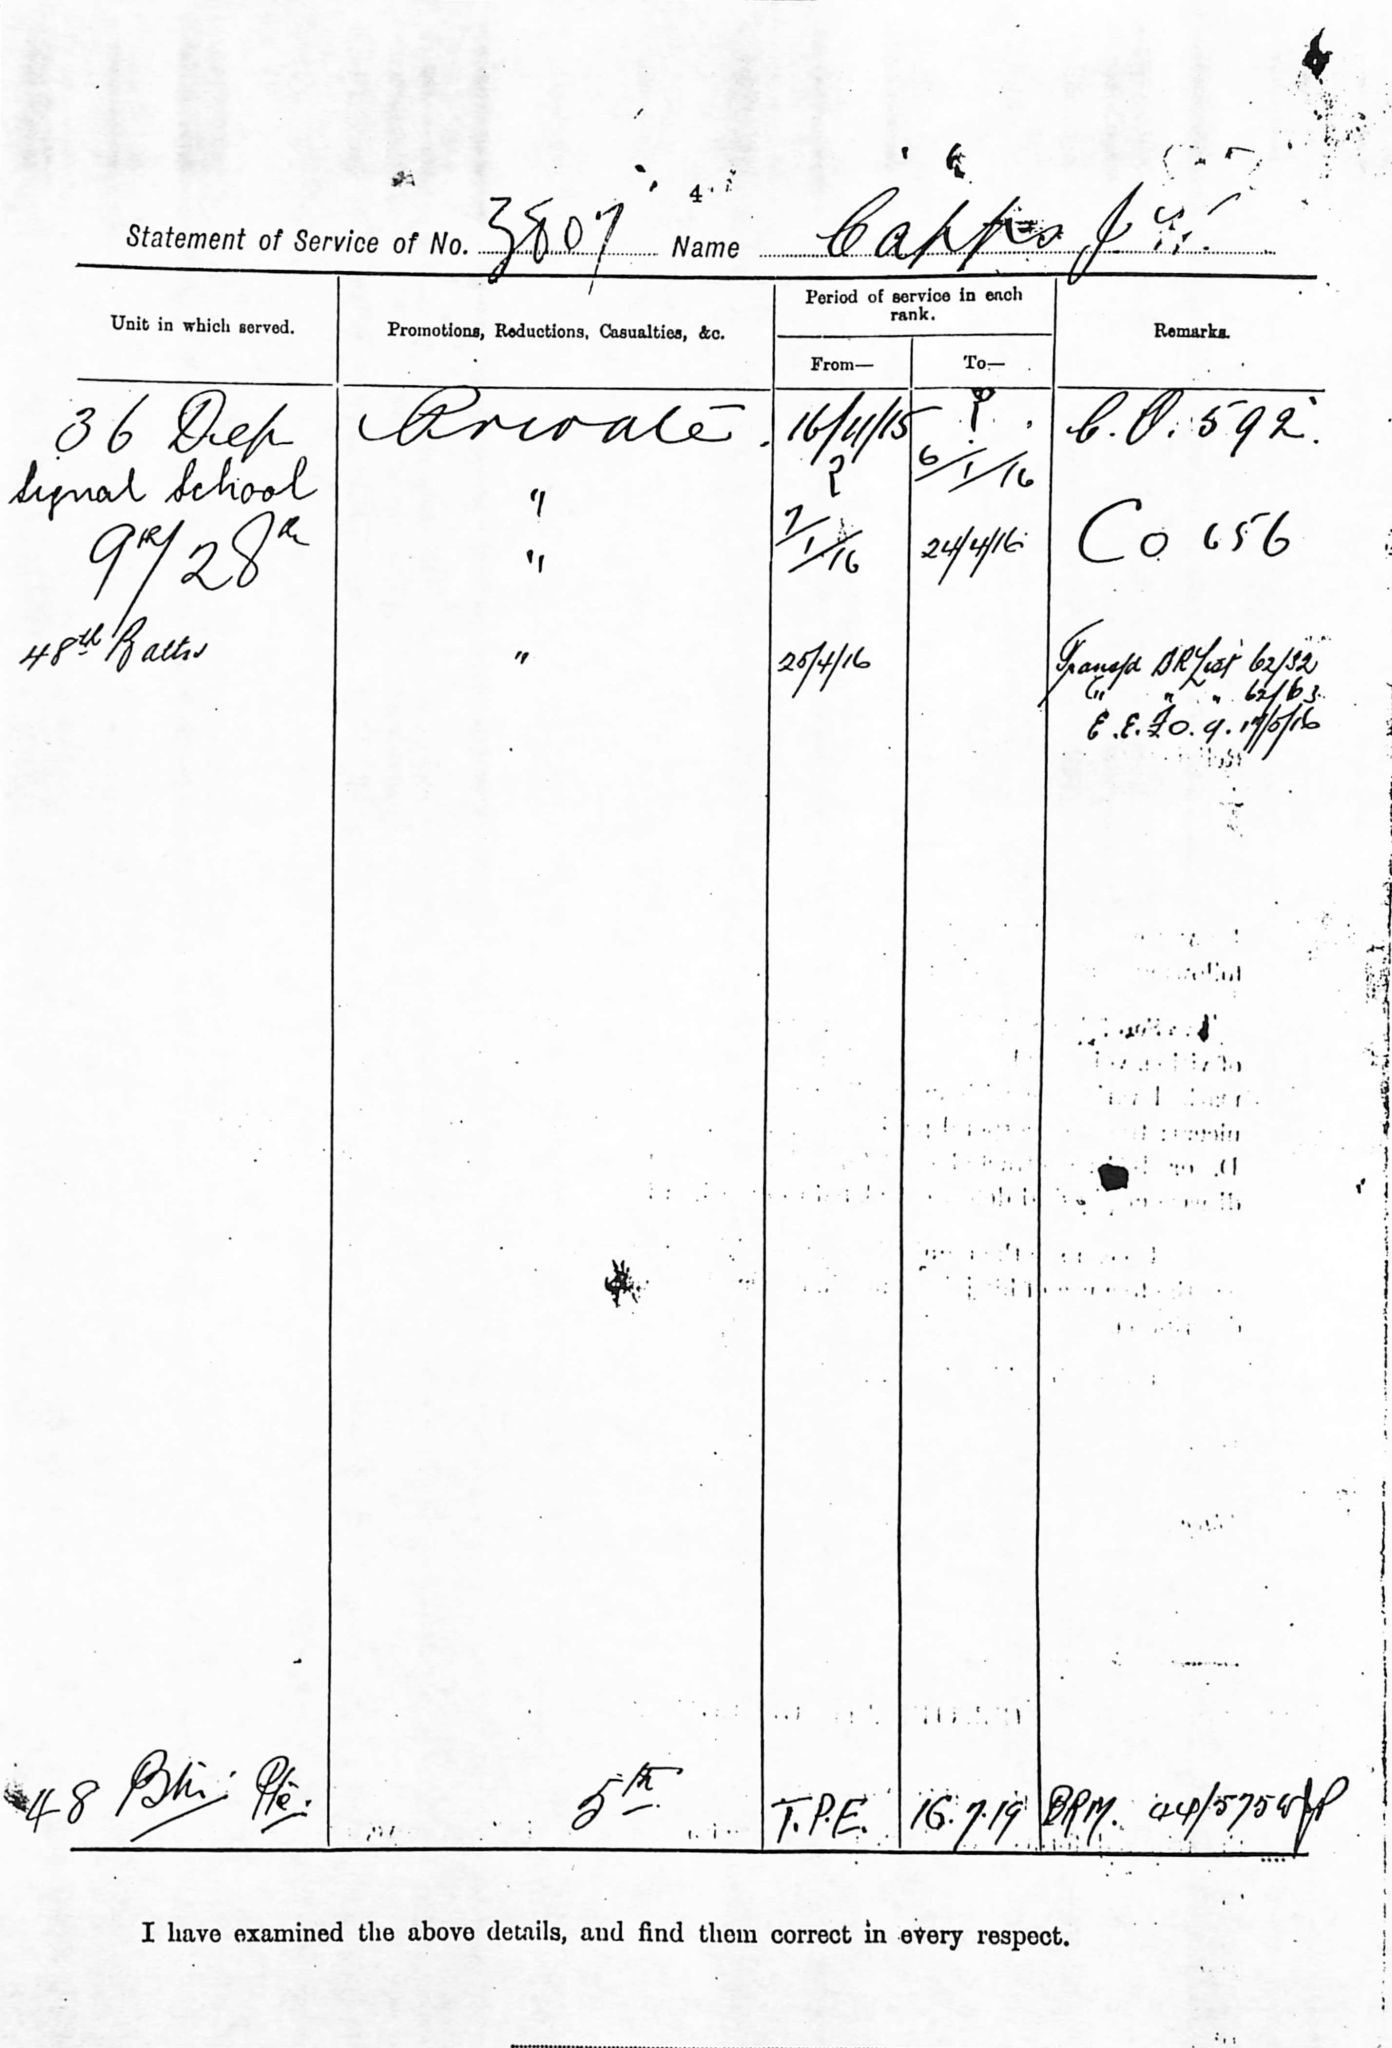 4
Statement of Service of No. 3807 Name Capps J
Unit in which served. Promotions, Reductions, Casualties, &c. Period of service in each rank. Remarks.
From— To—
36 Dep Private 16/11/15 ? C.O. 592.
Signal School " ? 6/1/16
9th/28th " 7/1/16 24/4/16 Co 656
48th Battn " 25/4/16 Transfd BR List 62/32
" " " 62/63
E.E.F.O. 9. 17/5/16
48 Btn: Pte. 5th T.P.E. 16.7.19 BRM. 44/5754
I have examined the above details, and find them correct in every respect.